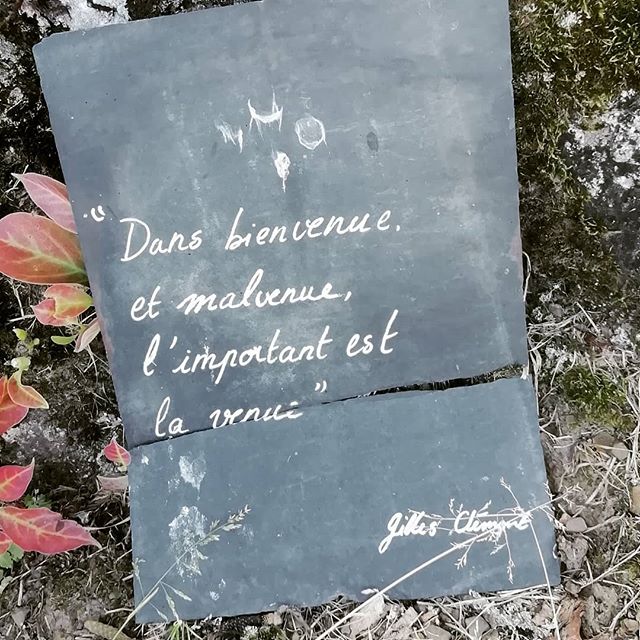 “Dans bienvenue.
et malvenue,
l'important est
la venue”
Gilles Clément